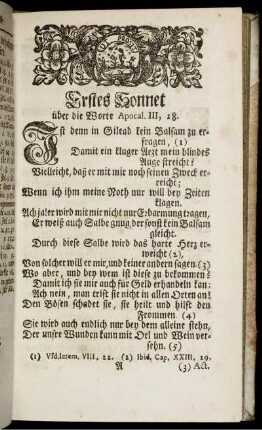 Erstes Sonnet
über die Worte Apocal. III, 18.
Ist denn in Gilead kein Balsam zu er-
fragen, (1)
Damit ein kluger Arzt mein blindes
Auge streicht?
Vielleicht, daß er mit mir noch seinen Zweck er-
reicht;
Wenn ich ihm meine Noth nur will bey Zeiten
klagen.
Ach ja! er wird mit mir nicht nur Erbarmung tragen,
Er weiß auch Salbe gnug der sonst kein Balsam
gleicht.
Durch diese Salbe wird das harte Herz er-
weicht (2),
Von solcher will er mir, und keiner andern sagen. (3)
Wo aber, und bey wem ist diese zu bekommen?
Damit ich sie mir auch für Geld erhandeln kan:
Ach nein, man trift sie nicht in allen Orten an!
Den Bösen schadet sie, sie heilt und hilft den
Frommen. (4)
Sie wird auch endlich nur bey dem alleine stehn,
Der unsre Wunden kann mit Oel und Wein ver-
sehn. (5)
(1) Vid. Ierem. VIII, 22. (2) Ibid. Cap. XXIII. 29.
A (3) Act.